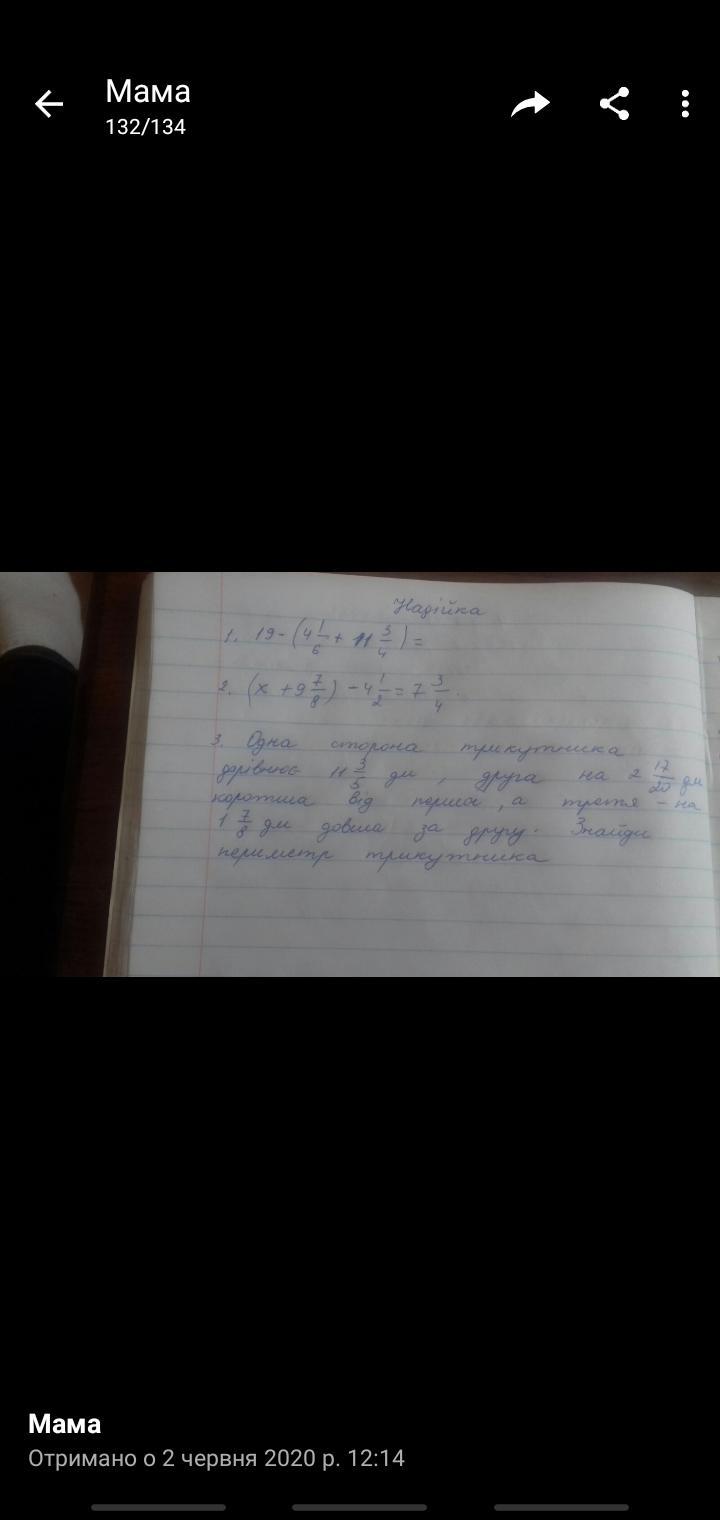 Мама
132/134
Надійка
1. 19-(4 1/6 + 11 3/4) =
2. (x + 9 7/8) - 4 1/2 = 7 3/4.
3. Одна сторона трикутника
дорівнює 11 3/5 дм, друга на 2 17/20 дм
коротша від першої, а третя - на
1 7/8 дм довша за другу. Знайди
периметр трикутника
Мама
Отримано о 2 червня 2020 р. 12:14